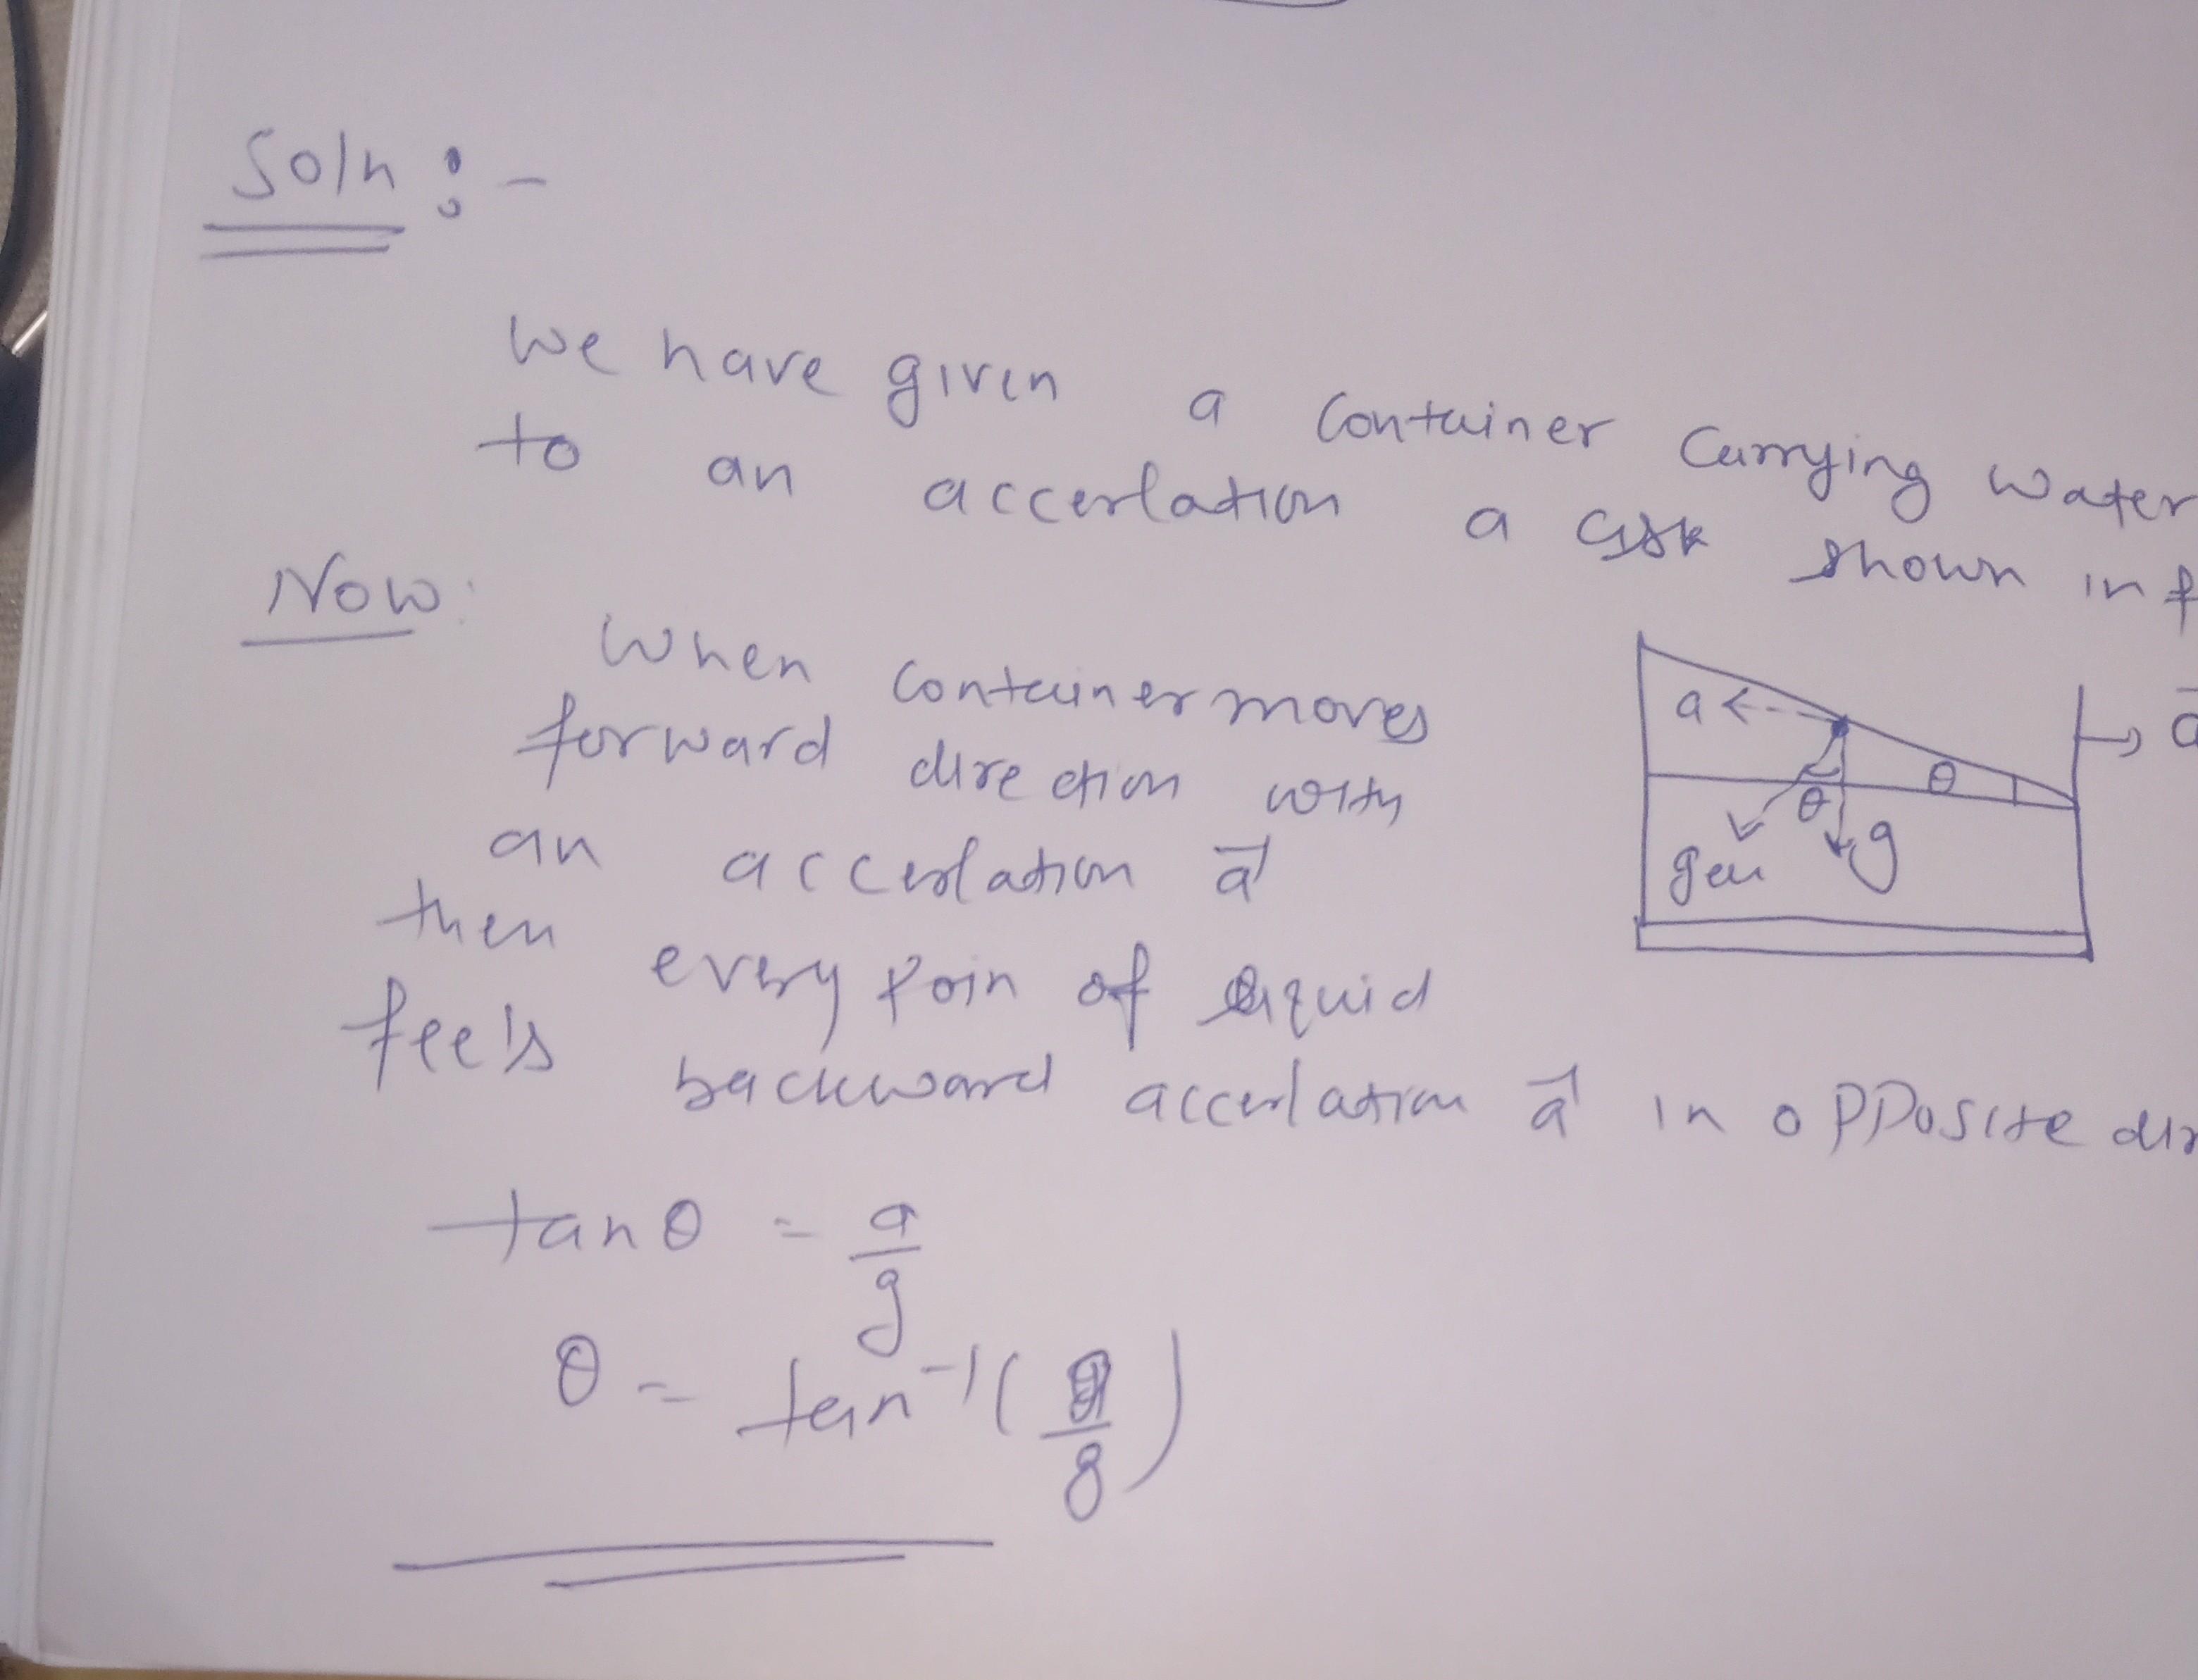 Soln :-
We have given a container carrying water
to an accerlation a shown in f
Now:
When container moves
forward direction with
an accerlation a⃗
then every poin of liquid
feels backward accerlation a⃗ in opposite dir
a
θ
θ
g
a⃗
tanθ = a/g
θ = tan⁻¹(a/g)